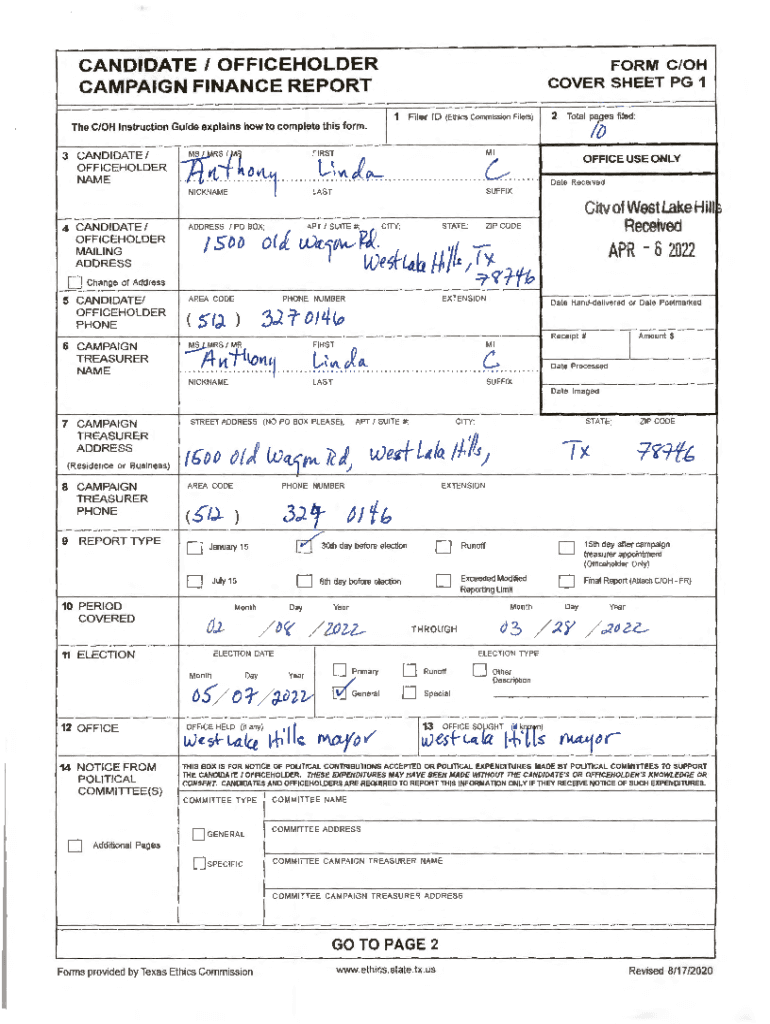 CANDIDATE / OFFICEHOLDER
CAMPAIGN FINANCE REPORT
FORM C/OH
COVER SHEET PG 1
The C/OH Instruction Guide explains how to complete this form.
1 Filer ID (Ethics Commission Filers)
2 Total pages filed:
10
3 CANDIDATE / OFFICEHOLDER NAME
MS / MRS / MR FIRST MI
Anthony Linda C
NICKNAME LAST SUFFIX
OFFICE USE ONLY
Date Received
City of West Lake Hills
Received
APR - 6 2022
4 CANDIDATE / OFFICEHOLDER MAILING ADDRESS
Change of Address
ADDRESS / PO BOX; APT / SUITE #; CITY; STATE; ZIP CODE
1500 Old Wagon Rd.
West Lake Hills, Tx
78746
5 CANDIDATE/ OFFICEHOLDER PHONE
AREA CODE PHONE NUMBER EXTENSION
(512) 3270146
Date Hand-delivered or Date Postmarked
Receipt # Amount $
Date Processed
Date Imaged
6 CAMPAIGN TREASURER NAME
MS / MRS / MR FIRST MI
Anthony Linda C
NICKNAME LAST SUFFIX
7 CAMPAIGN TREASURER ADDRESS
(Residence or Business)
STREET ADDRESS (NO PO BOX PLEASE); APT / SUITE #; CITY; STATE; ZIP CODE
1500 Old Wagon Rd, West Lake Hills, Tx 78746
8 CAMPAIGN TREASURER PHONE
AREA CODE PHONE NUMBER EXTENSION
(512) 327 0146
9 REPORT TYPE
January 15
30th day before election
Runoff
15th day after campaign treasurer appointment (Officeholder Only)
July 15
8th day before election
Exceeded Modified Reporting Limit
Final Report (Attach C/OH - FR)
10 PERIOD COVERED
Month Day Year Month Day Year
02 / 08 / 2022 THROUGH 03 / 28 / 2022
11 ELECTION
ELECTION DATE
Month Day Year
05 / 07 / 2022
ELECTION TYPE
Primary
Runoff
Other Description
General
Special
12 OFFICE
OFFICE HELD (if any)
West Lake Hills mayor
13 OFFICE SOUGHT (if known)
West Lake Hills mayor
14 NOTICE FROM POLITICAL COMMITTEE(S)
THIS BOX IS FOR NOTICE OF POLITICAL CONTRIBUTIONS ACCEPTED OR POLITICAL EXPENDITURES MADE BY POLITICAL COMMITTEES TO SUPPORT
THE CANDIDATE / OFFICEHOLDER. THESE EXPENDITURES MAY HAVE BEEN MADE WITHOUT THE CANDIDATE'S OR OFFICEHOLDER'S KNOWLEDGE OR
CONSENT. CANDIDATES AND OFFICEHOLDERS ARE REQUIRED TO REPORT THIS INFORMATION ONLY IF THEY RECEIVE NOTICE OF SUCH EXPENDITURES.
COMMITTEE TYPE
COMMITTEE NAME
Additional Pages
GENERAL
SPECIFIC
COMMITTEE ADDRESS
COMMITTEE CAMPAIGN TREASURER NAME
COMMITTEE CAMPAIGN TREASURER ADDRESS
GO TO PAGE 2
Forms provided by Texas Ethics Commission
www.ethics.state.tx.us
Revised 8/17/2020